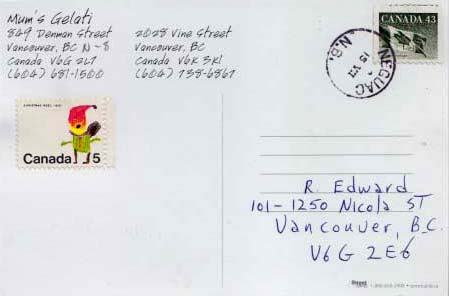 Mum's Gelati
849 Denman Street
Vancouver, BC N-8
Canada V6G 2L7
(604) 681-1500
2028 Vine Street
Vancouver, BC
Canada V6K 3K1
(604) 738-6861
CANADA 43
NEGUAC
N.B.
15 VII
CHRISTMAS NOËL 1970
Canada 5
R. Edward
101-1250 Nicola ST
Vancouver, B.C.
V6G 2E6